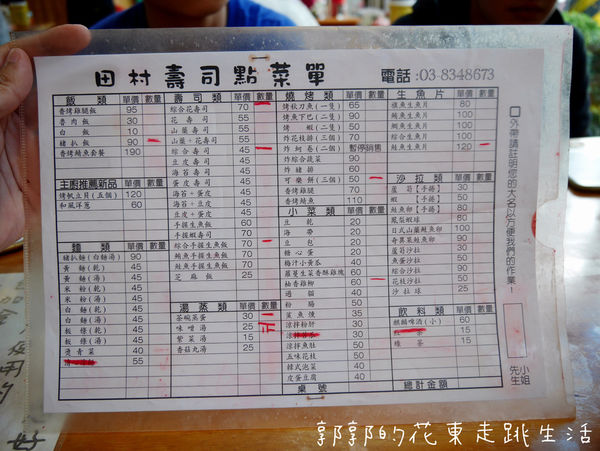 田村壽司點菜單
電話:03-8348673
飯類 單價 數量
香烤雞腿飯 95
魯肉飯 30
白飯 10
豬扒飯 90
香烤鯖魚套餐 190
主廚推薦新品 單價 數量
烤帆立月(五個) 120
和風洋蔥 60
麵類 單價 數量
豬扒麵(白麵湯) 90
黃麵(乾) 40
黃麵(湯) 40
米粉(乾) 40
米粉(湯) 40
白麵(乾) 40
白麵(湯) 40
板條(乾) 45
板條(湯) 45
燙青菜 40
55
壽司類 單價 數量
綜合花壽司 70
花壽司 55
山葉壽司 55
山葉+花壽司 55
綜合壽司 55
豆皮壽司 55
海苔壽司 55
蛋皮壽司 55
海苔+豆皮 55
海苔+蛋皮 55
豆皮+蛋皮 55
手捏蝦壽司 60
綜合手捏生魚飯 70
鮪魚手捏生魚飯 70
鮭魚手捏生魚飯 70
芝麻飯 25
湯蒸類 單價 數量
茶碗蒸蛋 30
味噌湯 25 正
紫菜湯 15
香菇丸湯 25
燒烤類 單價 數量
烤秋刀魚(一隻) 65
烤魚下巴(二隻) 90
烤蝦(二隻) 50
炸花枝排(三個) 50
炸蚵卷(二個) 暫停銷售
炸綜合蔬菜 90
炸豬排 60
可樂餅(三個) 50
香烤雞腿 70
香烤鯖魚 110
小菜類 單價 數量
豆乾 30
海帶 20
豆包 30
糖心蛋 20
楊汁小黃茶 40
蘿蔓生菜香酥雞塊 60
柚香雞柳 60
過貓 40
粉腸 50
菜魚燻 30
涼拌粉肝 30
30
涼拌魚肚 50
五味花枝 50
韓式泡菜 40
皮蛋豆腐 40
桌號
生魚片 單價 數量
旗魚生魚片 80
鮪魚生魚片 100
鯛魚生魚片 100
綜合生魚片 100
鮭魚生魚片 120
沙拉類 單價 數量
蘆筍【手捲】 30
蝦【手捲】 50
鮭魚卵【手捲】 80
鳳梨蝦球 50
日式山葉鮭魚卵 100
奇異菓鮭魚卵 100
蘆筍沙拉 50
魚蛋沙拉 50
綜合沙拉 90
花枝沙拉 50
沙拉球 25
飲料類 單價 數量
麒麟啤酒(小) 60
15
綠茶 15
總計金額
□外帶請註明您的大名以方便我們的作業！
先生 小姐
郭郭的花東走跳生活